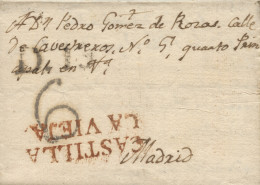 A Dn Pedro Gomez de Rozas, Calle
de Cavestreros, No 9, quarto Prin
cipal en
6
CASTILLA
LA VIEJA.
Madrid